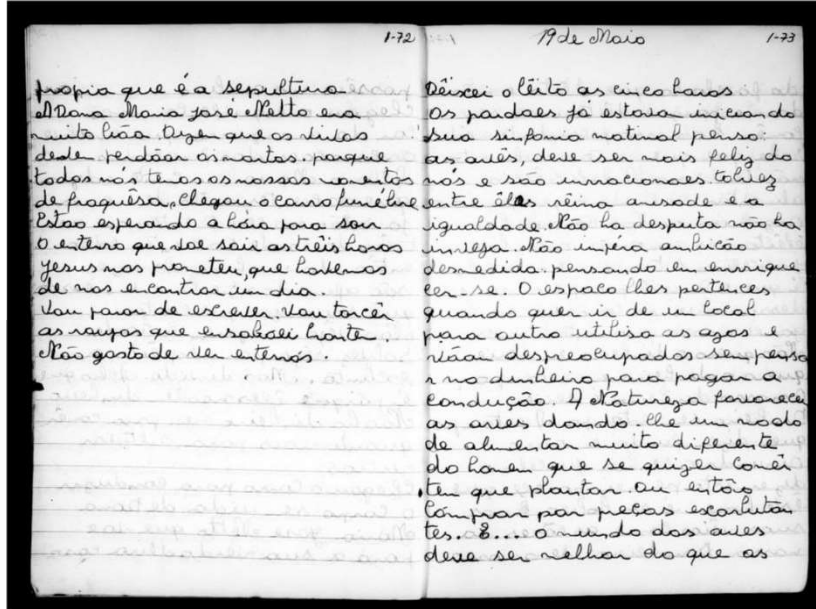 1-72
propia que é a sepultura
A Dona Maria José Netto era
muito bôa. Dizen que os vivos
deven perdôar os mortos. porque
todos nós temos os nossos momentos
de fraquêsa, chegou o carro funébre
Estao esperando a hóra para sair
O enterro que vae sair as trêis horas
Jesus nos prometeu, que havemos
de nos encontrar um dia.
Vou parar de escrever. Vou torcêr
as roupas que ensabôei honten.
Não gosto de ver enterros.
19 de Maio
1-73
Dêixei o lêito as cinco horas
Os pardaes já estava iniciando
sua sinfonia matinal penso:
as avês, deve ser mais feliz do
nós e são irracionaes. talvez
entre élas rêina amisade e a
igualdade. Não ha desputa não ha
inveja. Não impéra ambicão
desmedida. pensando em enrique
cer-se. O espaco lhes pertences
quando quer ir de um local
para outro utilisa as azas e
vãon despreocupados sem pensa
r no dinheiro para pagar a
condução. A Natureza favoreceu
as aves dando-lhe um modo
de alimentar muito diferente
do homen que se quizer comêr
ten que plantar. Ou então
Comprar por preços exorbitan
tes. E.... o mundo das aves
deve ser melhor do que as